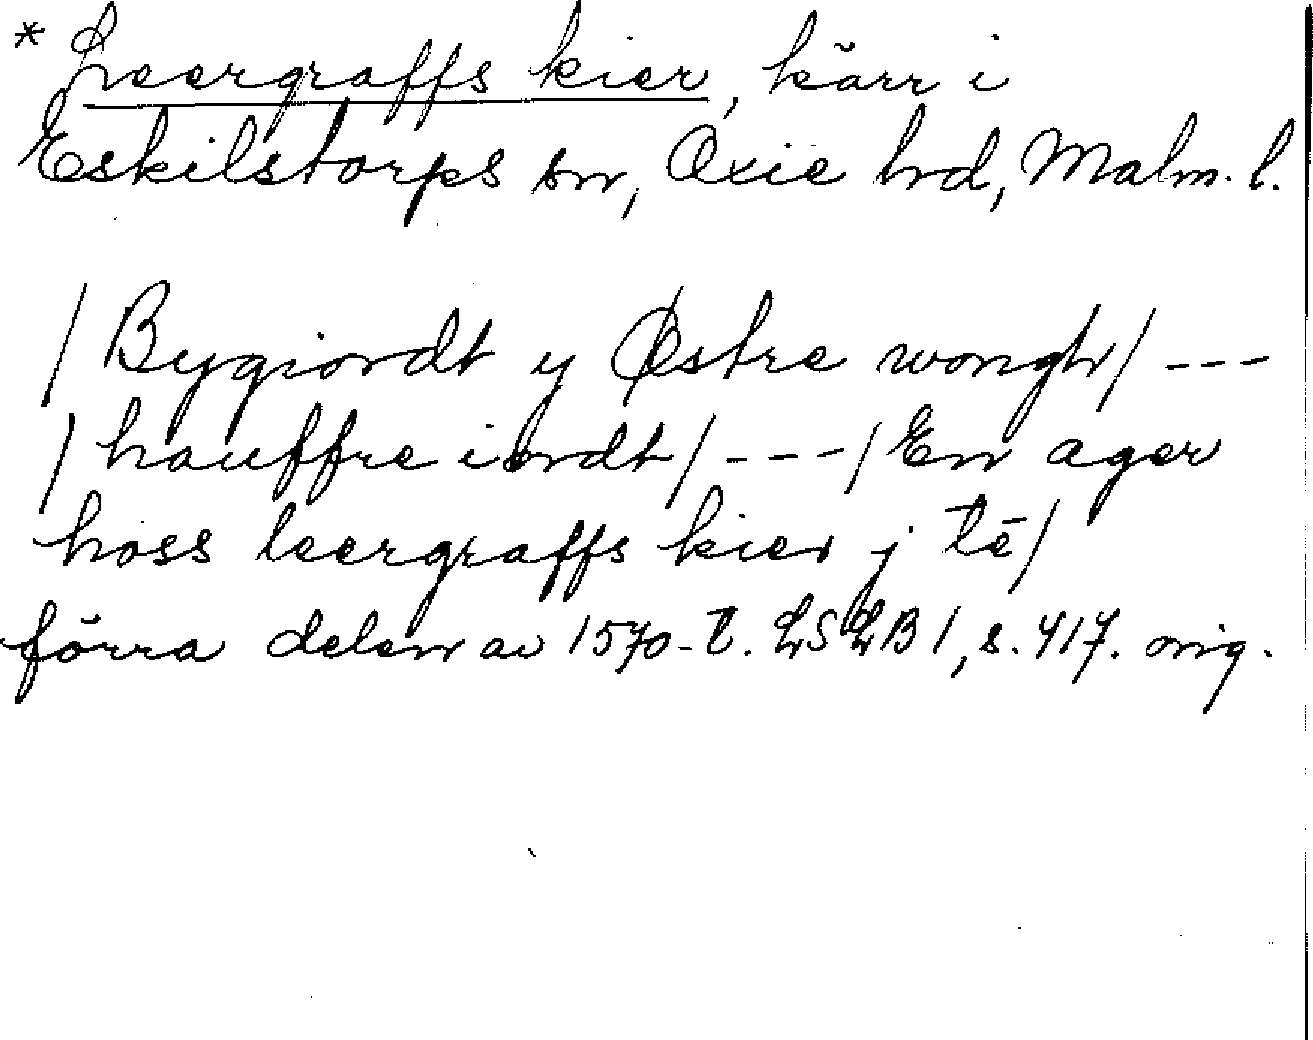 * Leergraffs kier, kärr i
Eskilstorps sn, Oxie hd, Malm. l.
/Bygiordt y Østre wongh/ ---
/hauffre iordt/ ---/En ager
hoss leergraffs kier j tē/
förra delen av 1570-t. LSLB 1, s. 417. orig.